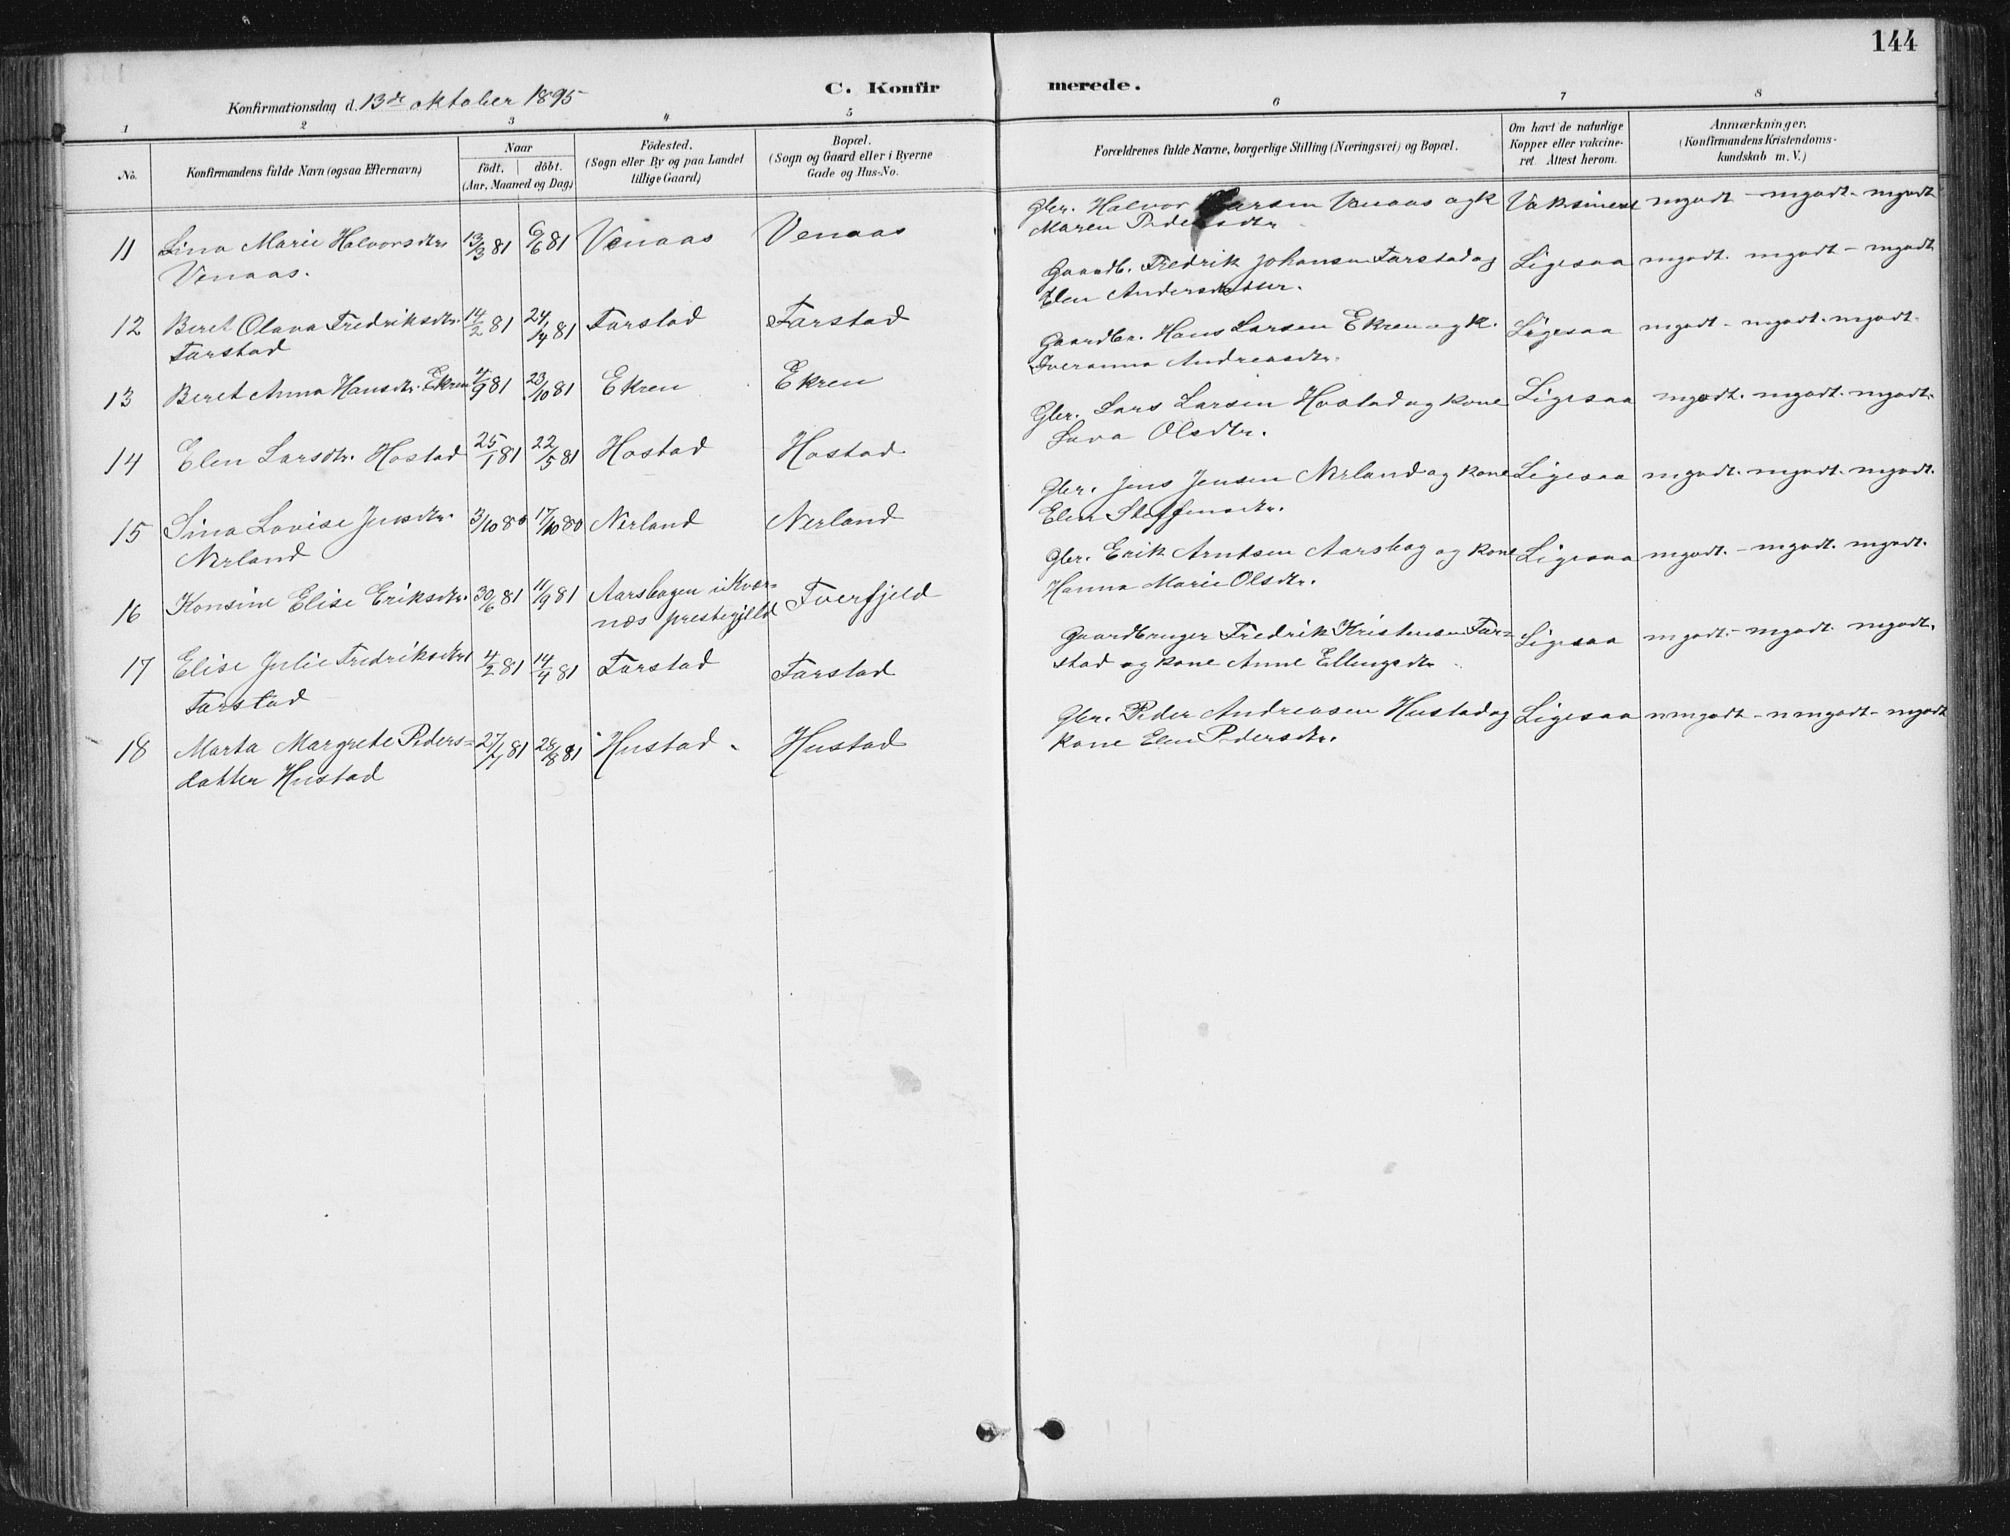 144
C. Konfir merede.
Konfirmationsdag d. 13de oktober 1895
1 2 3 4 5 6 7 8
No.
Konfirmandens fulde Navn (ogsaa Efternavn)
Naar
födt. döbt.
(Aar, Maaned og Dag)
Födested.
(Sogn eller By og paa Landet
tillige Gaard)
Bopæl.
(Sogn og Gaard eller i Byerne
Gade og Hus-No.
Forældrenes fulde Navne, borgerlige Stilling (Næringsvei) og Bopæl.
Om havt de naturlige
Kopper eller vakcine-
ret. Attest herom.
Anmærkninger.
(Konfirmandens Kristendoms-
kundskab m. V.)
11 Lina Marie Halvorsdtr. 13/3 81 6/6 81 Venaas Venaas Gbr. Halvor Larsen Venaas og k Vaksineret mgodt - mgodt - mgodt
Venaas. Maren Pedersdtr.
12 Beret Olava Fredriksdtr. 14/2 81 24/4 81 Farstad Farstad Gaardb. Fredrik Johansen Farstad og Ligesaa mgodt. mgodt - mgodt
Farstad Elen Andersdatter.
13 Beret Anna Hansdtr. Ekren 4/9 81 23/10 81 Ekren Ekren Gaardbr. Hans Larsen Ekren og k. Ligesaa mgodt - mgodt. mgodt.
Iveranna Andreasdtr.
14 Elen Larsdtr. Hostad 25/1 81 22/5 81 Hostad Hostad Gbr. Lars Larsen Hostad og kone Ligesaa mgodt. mgodt. mgodt.
Lava Olsdtr.
15 Sina Lovise Jensdtr. 3/10 80 17/10 80 Nerland Nerland Gbr. Jens Jensen Nerland og kone Ligesaa mgodt. mgodt. mgodt.
Nerland Elen Steffensdtr.
16 Konsine Elise Eriksdtr. 30/6 81 11/9 81 Aarsbogen i Kvær- Tverfjeld Gbr. Erik Arntsen Aarsbog og kone Ligesaa mgodt. - mgodt. mgodt.
nos prestegjeld Hanna Marie Olsdtr.
17 Elise Julie Fredriksdtr. 4/2 81 14/4 81 Farstad Farstad Gaardbruger Fredrik Kristensen Far- Ligesaa mgodt. - mgodt. mgodt.
Farstad stad og kone Anne Ellingsdtr.
18 Marta Margrete Peders- 27/7 81 28/8 81 Hustad. Hustad Gbr. Peder Andreasen Hustad og Ligesaa nmgodt - nmgodt - mgodt
datter Hustad kone Elen Pedersdtr.